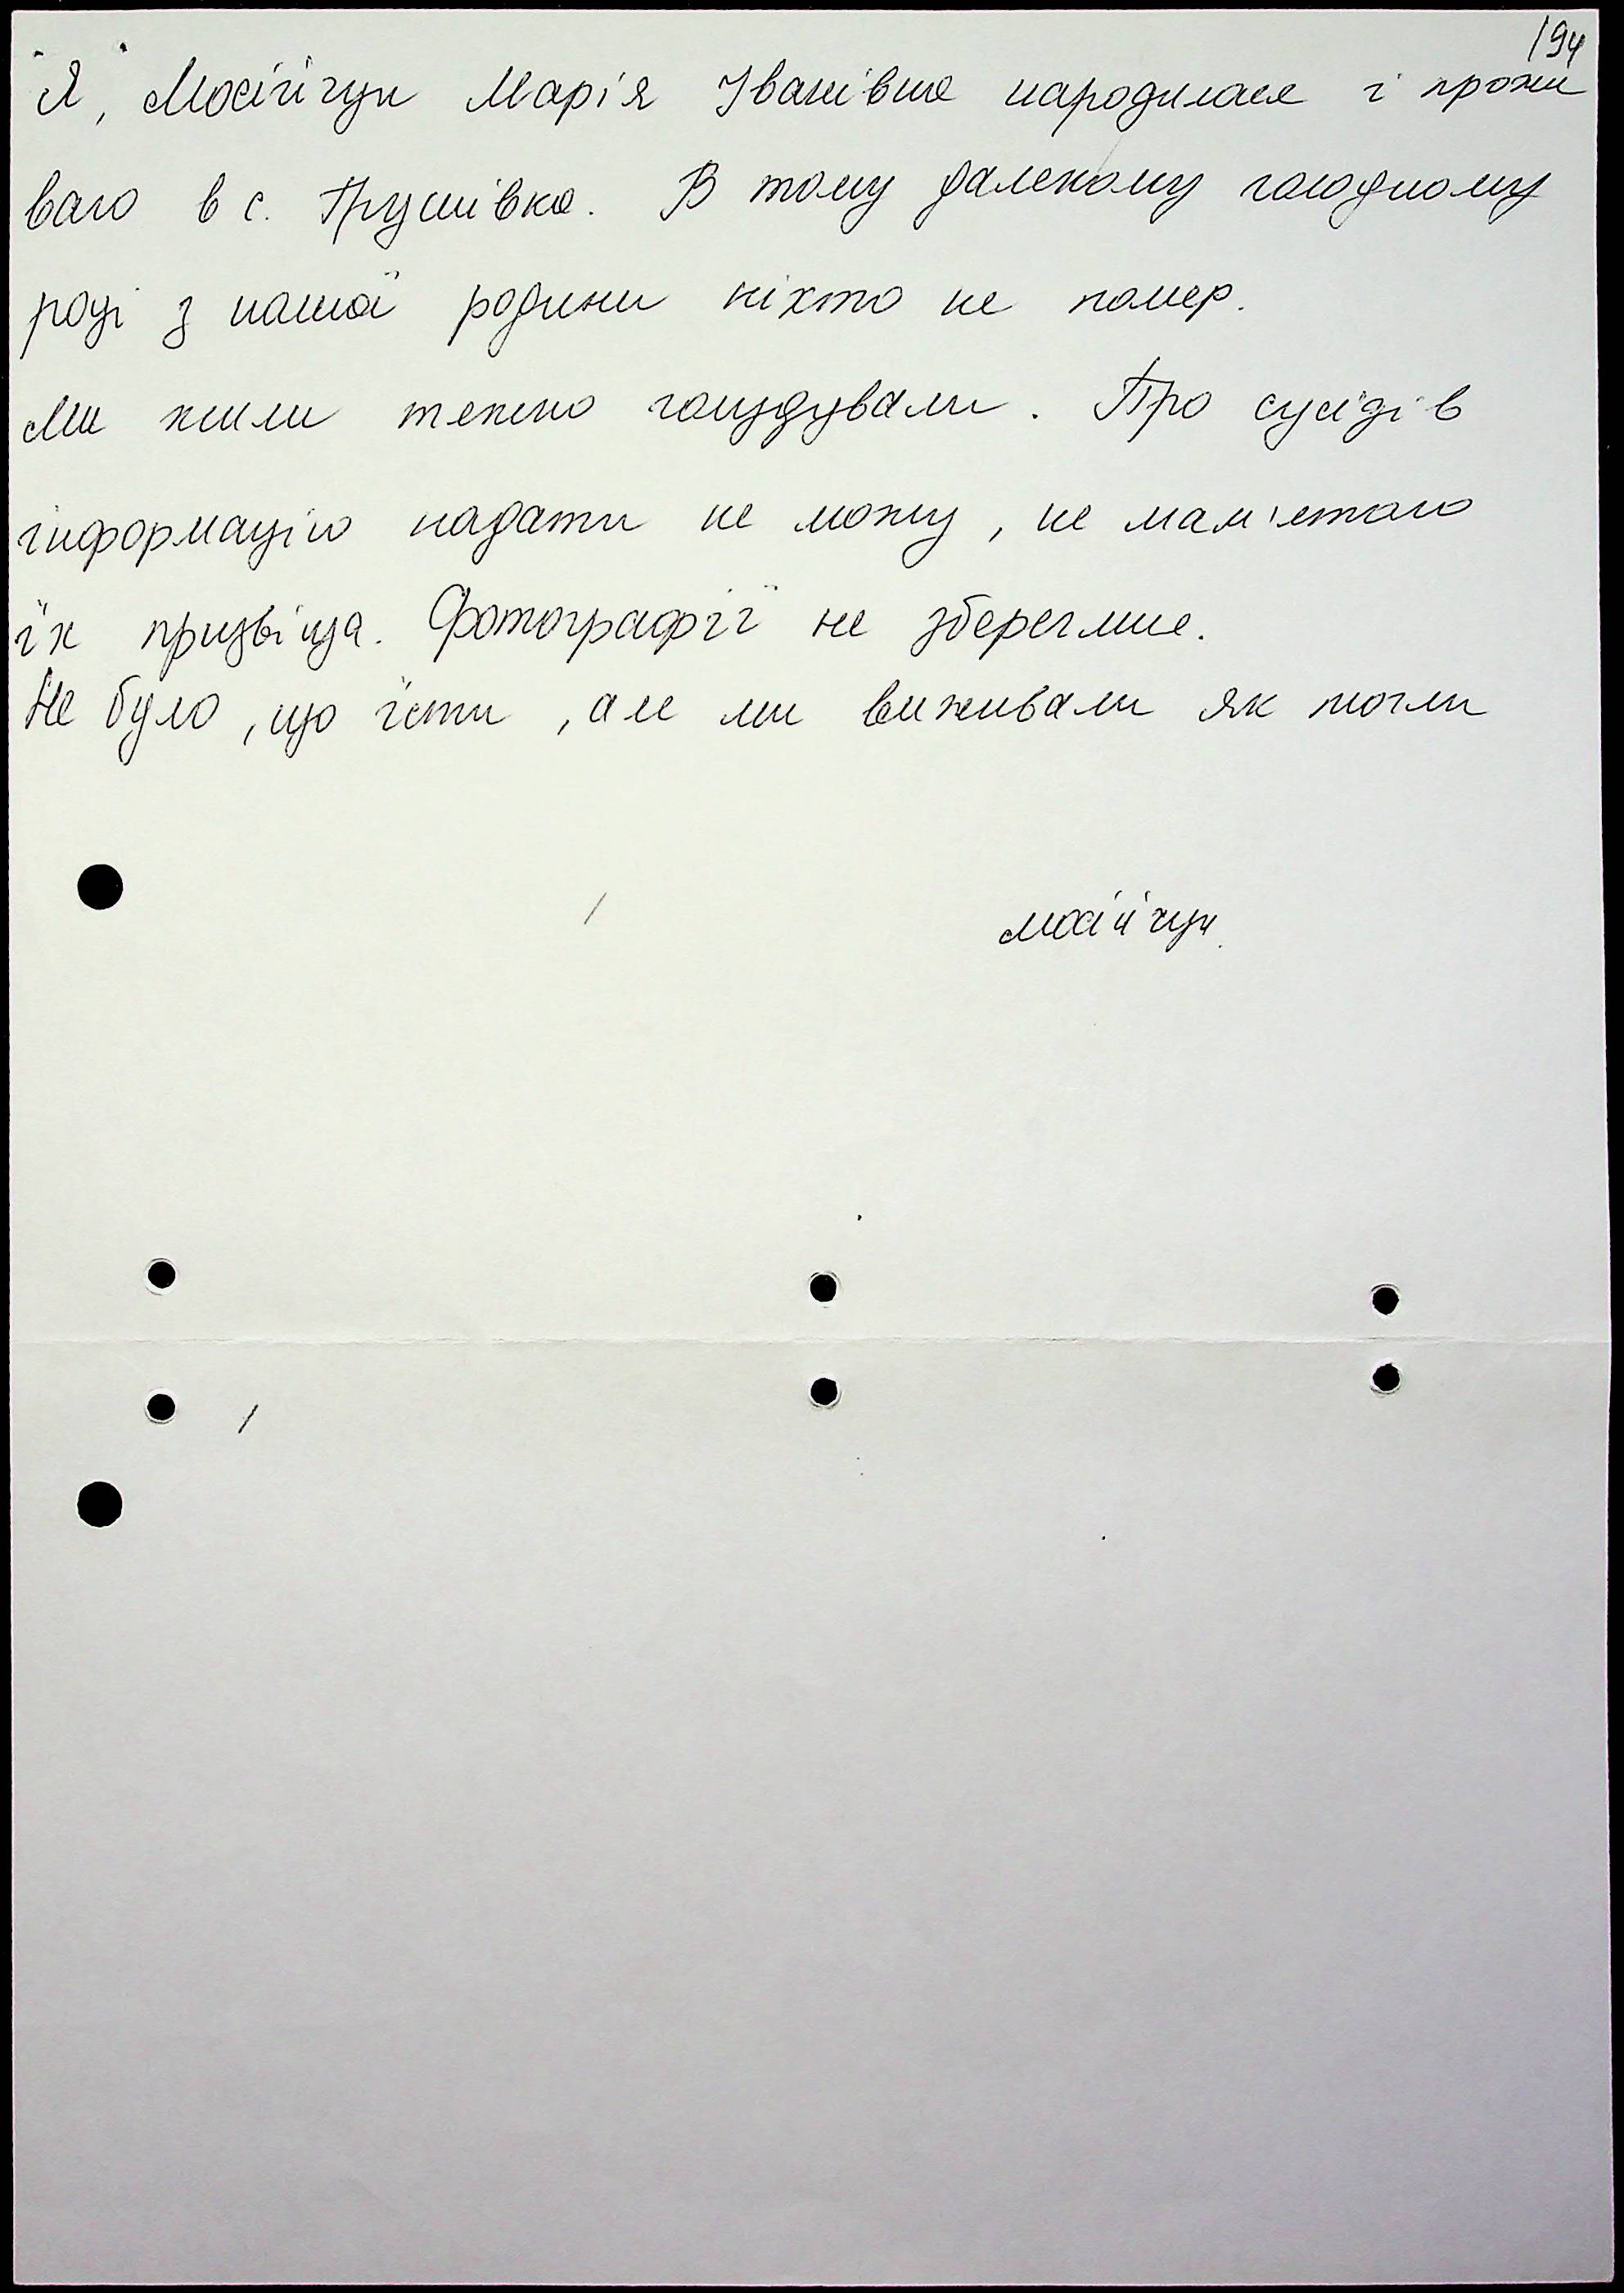 194
Я, Мосійчук Марія Іванівна народилася і прожи
ваю в с. Грушівка. В тому далекому голодному
році з нашої родини ніхто не помер.
Ми жили тяжко голодували. Про сусідів
інформацію надати не можу, не пам'ятаю
їх прізвища. Фотографії не збереглися.
Не було, що їсти, але ми виживали як могли
Мосійчук